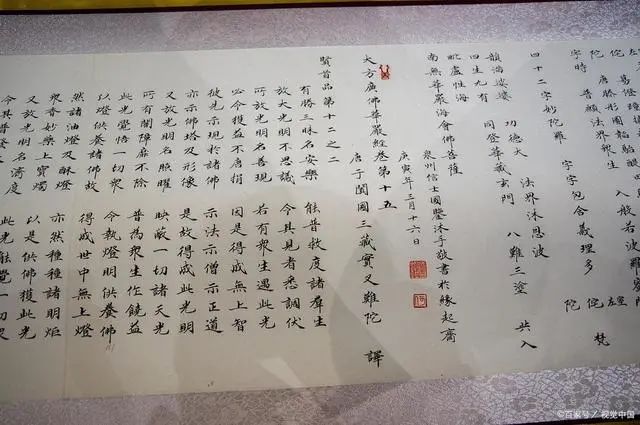 四十二字妙陀羅　字字包含義理多
功德大　法界沐恩波
四生九有　同登華藏玄門　八難三塗　共入
毗盧性海
南無華嚴海會佛菩薩
庚寅年三月十六日
泉州信士國璽沐手敬書於緣起齋
大方廣佛華嚴經卷第十五
唐于闐國三藏實叉難陀　譯
賢首品第十二之二
有勝三昧名安樂　能普救度諸群生
放大光明不思議　令其見者悉調伏
所放光明名善現　若有眾生遇此光
必令獲益不唐捐　因是得成無上智
彼先示現於諸佛　示法示僧示正道
亦示佛塔及形像　是故得成此光明
又放光明名照曜　映蔽一切諸天光
所有闇障靡不除　普為眾生作饒益
此光覺悟一切眾　令執燈明供養佛
以燈供養諸佛故　得成世中無上燈
然諸油燈及酥燈　亦然種種諸明炬
眾香妙藥上寶燭　以是供佛獲此光
又放光明名濟度　此光能覺一切眾